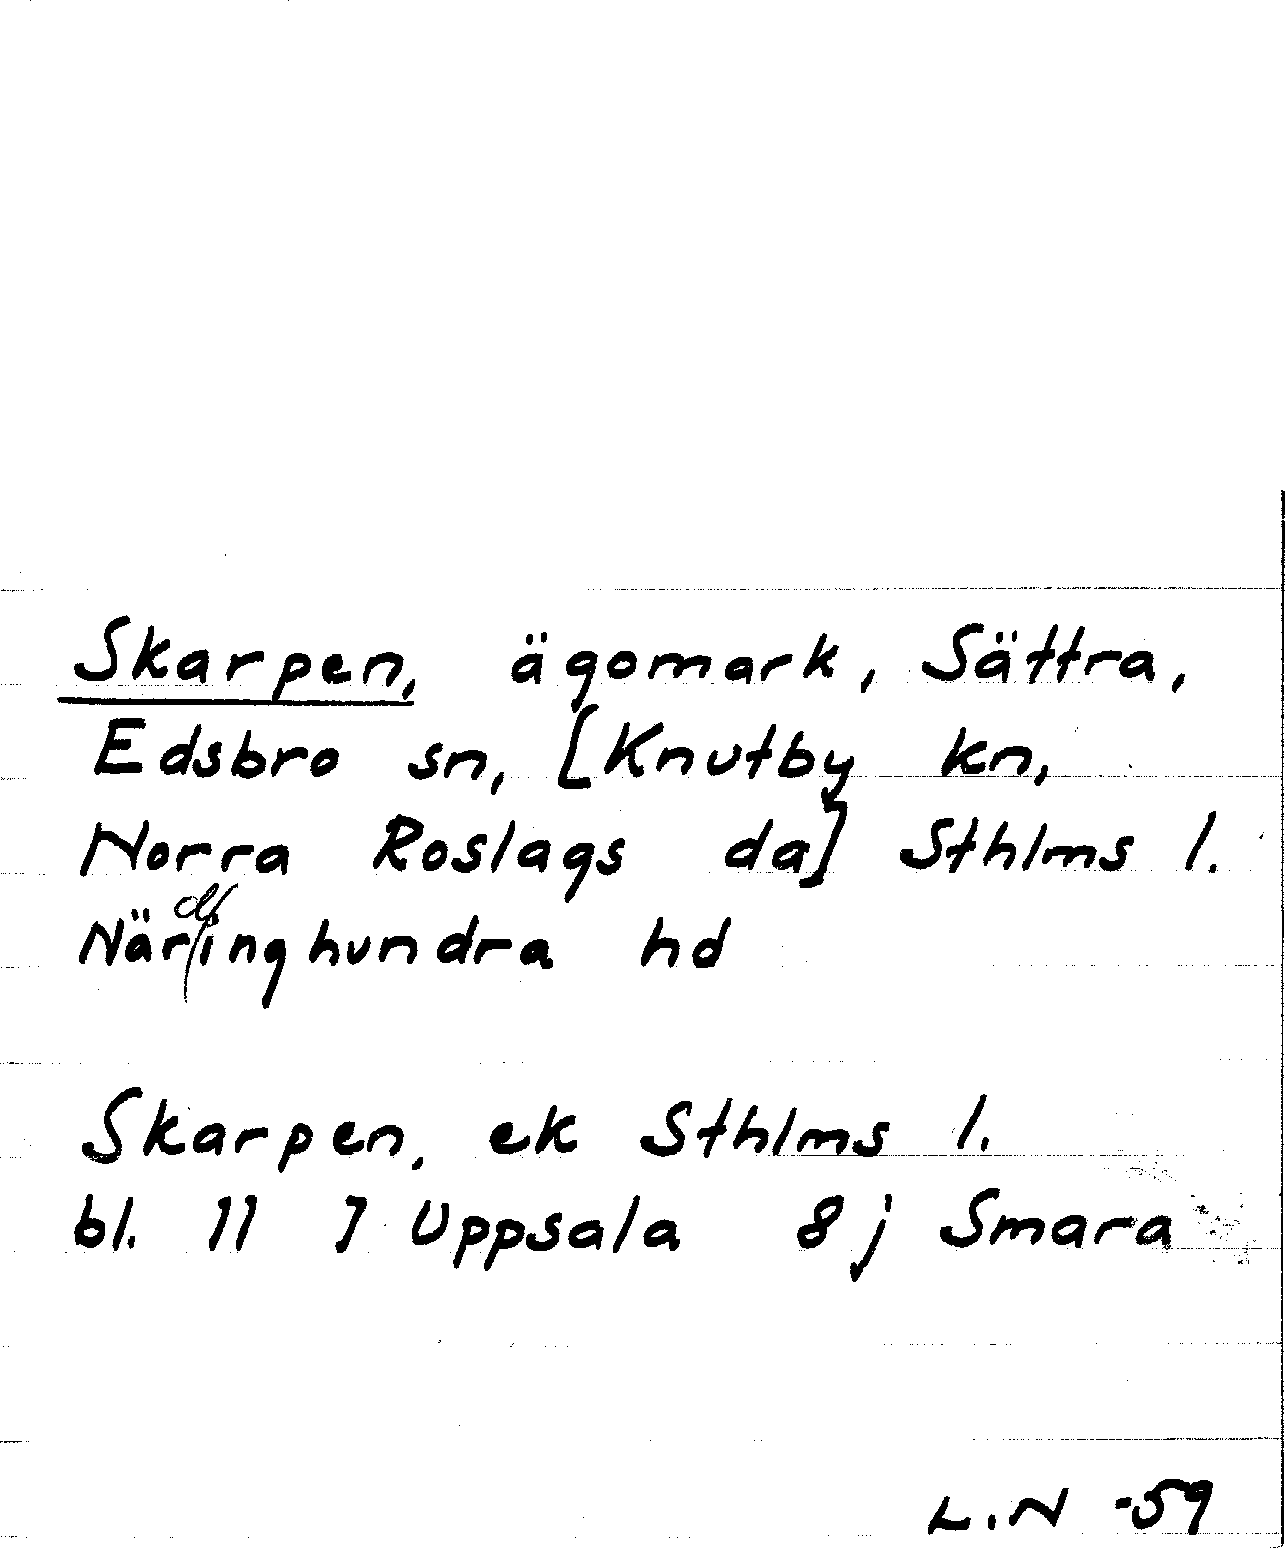 Skarpen, ägomark, Sättra,
Edsbro sn, [Knutby kn,
Norra Roslags da] Sthlms l.
Närdinghundra hd
Skarpen, ek Sthlms l.
bl. 11 I Uppsala 8 j Smara
L.N -59